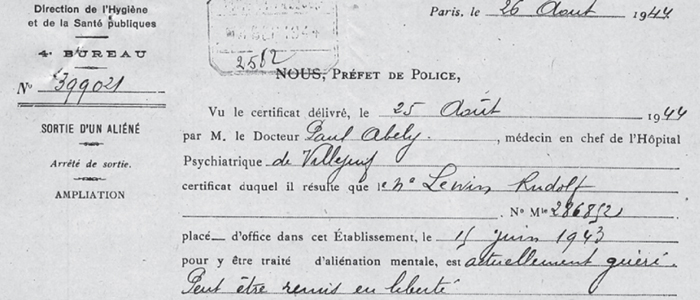 Direction de l'Hygiène
et de la Santé publiques
4e BUREAU
No 399021
SORTIE D'UN ALIÉNÉ
Arrêté de sortie.
AMPLIATION
2582
Paris, le 26 Août 1944
NOUS, PRÉFET DE POLICE,
Vu le certificat délivré, le 25 Août 1944
par M. le Docteur Paul Abély, médecin en chef de l'Hôpital
Psychiatrique de Villejuif
certificat duquel il résulte que le né Lewin Rudolf
No Mle
placé d'office dans cet Établissement, le 15 juin 1943
pour y être traité d'aliénation mentale, est actuellement guéri.
Peut être remis en liberté